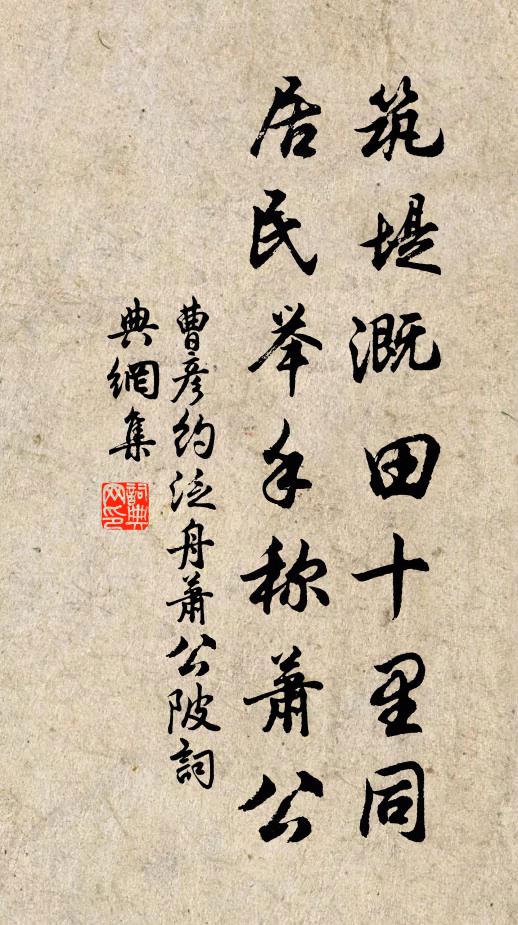 筑堤溉田十里同
居民举手称萧公
曹彦约泛舟萧公陂詞
典網集
詞典
网印